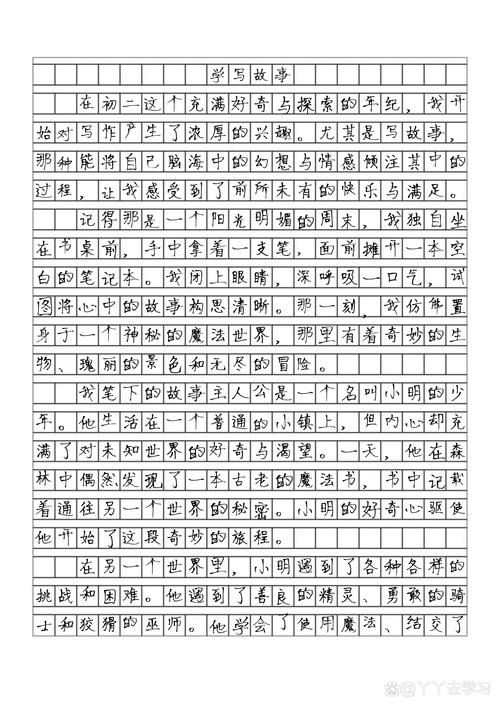 学写故事
在初二这个充满好奇与探索的年纪，我开
始对写作产生了浓厚的兴趣。尤其是写故事，
那种能将自己脑海中的幻想与情感倾注其中的
过程，让我感受到了前所未有的快乐与满足。
记得那是一个阳光明媚的周末，我独自坐
在书桌前，手中拿着一支笔，面前摊开一本空
白的笔记本。我闭上眼睛，深呼吸一口气，试
图将心中的故事构思清晰。那一刻，我仿佛置
身于一个神秘的魔法世界，那里有着奇妙的生
物、瑰丽的景色和无尽的冒险。
我笔下的故事主人公是一个名叫小明的少
年。他生活在一个普通的小镇上，但内心却充
满了对未知世界的好奇与渴望。一天，他在森
林中偶然发现了一本古老的魔法书，书中记载
着通往另一个世界的秘密。小明的好奇心驱使
他开始了这段奇妙的旅程。
在另一个世界里，小明遇到了各种各样的
挑战和困难。他遇到了善良的精灵、勇敢的骑
士和狡猾的巫师。他学会了使用魔法、结交了
@丫丫去学习